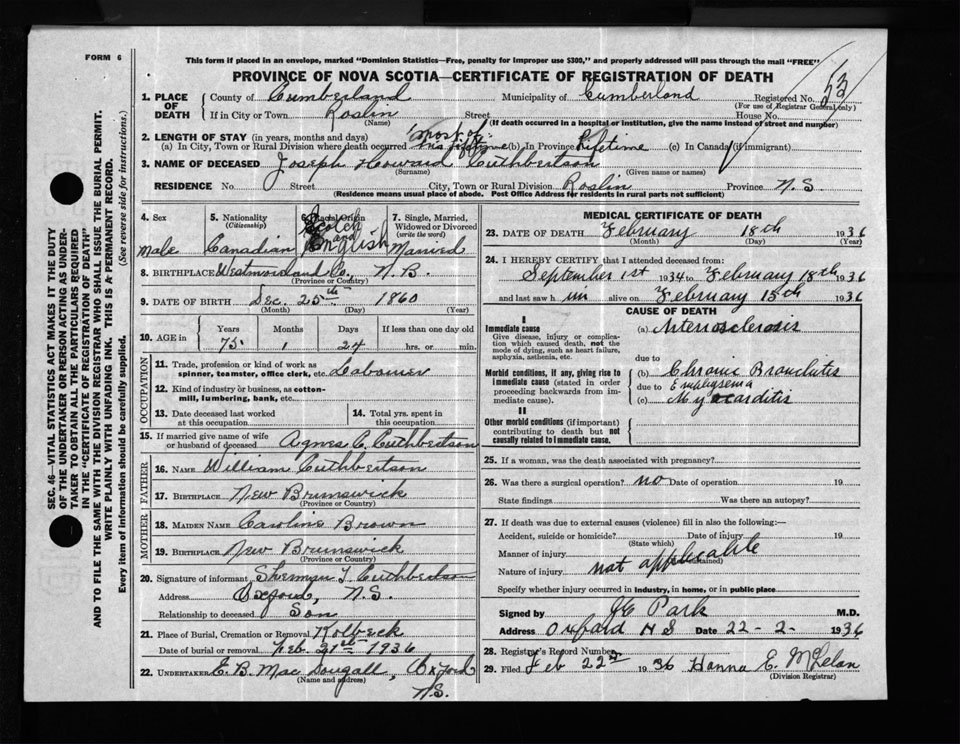 FORM 6
This form if placed in an envelope, marked "Dominion Statistics—Free, penalty for improper use $300," and properly addressed will pass through the mail "FREE"
PROVINCE OF NOVA SCOTIA—CERTIFICATE OF REGISTRATION OF DEATH
53
1. PLACE OF DEATH
County of Cumberland Municipality of Cumberland Registered No.
(For use of Registrar General only)
If in City or Town Roslin Street House No.
(Name) (If death occurred in a hospital or institution, give the name instead of street and number)
2. LENGTH OF STAY (in years, months and days) most of
(a) In City, Town or Rural Division where death occurred his lifetime (b) In Province Lifetime (c) In Canada (if immigrant)
3. NAME OF DECEASED Joseph Howard Cuthbertson
(Surname) (Given name or names)
RESIDENCE No. Street City, Town or Rural Division Roslin Province N.S
(Residence means usual place of abode. Post Office Address for residents in rural parts not sufficient)
4. Sex
Male
5. Nationality
(Citizenship)
Canadian
6. Racial Origin
Scotch
and
English
7. Single, Married, Widowed or Divorced
(write the word)
Married
8. BIRTHPLACE Westmorland Co., N.B.
(Province or Country)
9. DATE OF BIRTH Dec. 25th 1860
(Month) (Day) (Year)
10. AGE in
Years Months Days If less than one day old
75 1 24 hrs. or min.
OCCUPATION
11. Trade, profession or kind of work as
spinner, teamster, office clerk, etc. Labourer
12. Kind of industry or business, as cotton-
mill, lumbering, bank, etc.
13. Date deceased last worked
at this occupation
14. Total yrs. spent in
this occupation
15. If married give name of wife
or husband of deceased Agnes C. Cuthbertson
FATHER
16. NAME William Cuthbertson
17. BIRTHPLACE New Brunswick
(Province or Country)
MOTHER
18. MAIDEN NAME Caroline Brown
19. BIRTHPLACE New Brunswick
(Province or Country)
20. Signature of informant Sherman L Cuthbertson
Address Oxford, N.S.
Relationship to deceased Son
21. Place of Burial, Cremation or Removal Kolbeck
Date of burial or removal Feb. 21st 1936
22. UNDERTAKER E.B. MacDougall, Oxford
(Name and address) N.S.
MEDICAL CERTIFICATE OF DEATH
23. DATE OF DEATH February 18th 1936
(Month) (Day) (Year)
24. I HEREBY CERTIFY that I attended deceased from:
September 1st 1934 to February 18th 1936
and last saw him alive on February 15th 1936
CAUSE OF DEATH
I
Immediate cause
Give disease, injury or complication which caused death, not the mode of dying, such as heart failure, asphyxia, asthenia, etc.
(a) Arteriosclerosis
due to
Morbid conditions, if any, giving rise to immediate cause (stated in order proceeding backwards from immediate cause).
(b) Chronic Bronchitis
due to Emphysema
(c) Myocarditis
II
Other morbid conditions (if important) contributing to death but not causally related to immediate cause.
25. If a woman, was the death associated with pregnancy?
26. Was there a surgical operation? no Date of operation 19
State findings Was there an autopsy?
27. If death was due to external causes (violence) fill in also the following:—
Accident, suicide or homicide? Date of injury 19
(State which)
Manner of injury
Nature of injury not applicable
Specify whether injury occurred in industry, in home, or in public place
Signed by JE Park M.D.
Address Oxford NS Date 22-2- 1936
28. Registrar's Record Number
29. Filed Feb 22nd 1936 Hanna E. McLelan
(Division Registrar)
SEC. 46—VITAL STATISTICS ACT MAKES IT THE DUTY
OF THE UNDERTAKER OR PERSON ACTING AS UNDER-
TAKER TO OBTAIN ALL THE PARTICULARS REQUIRED
IN THE "CERTIFICATE OF REGISTRATION OF DEATH"
AND TO FILE THE SAME WITH THE DIVISION REGISTRAR WHO SHALL ISSUE THE BURIAL PERMIT.
WRITE PLAINLY WITH UNFADING INK. THIS IS A PERMANENT RECORD.
Every item of information should be carefully supplied. (See reverse side for instructions.)